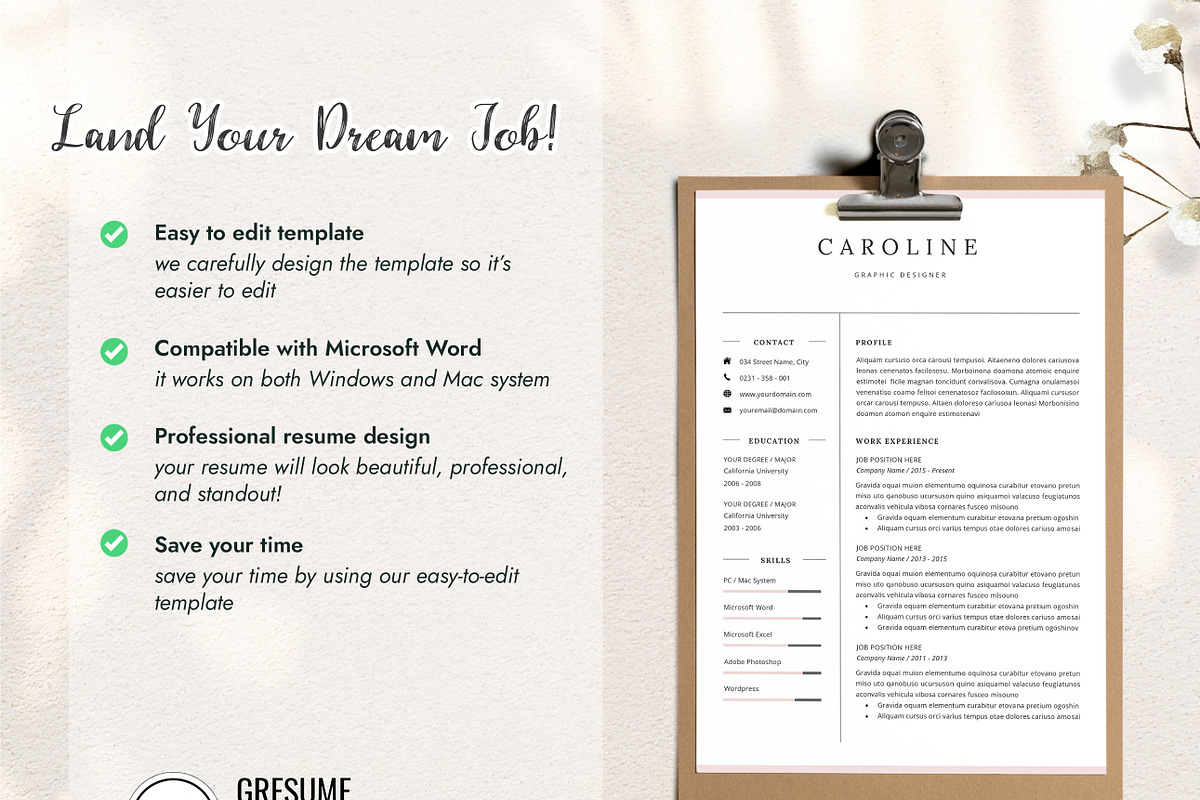 Land Your Dream Job!
Easy to edit template
we carefully design the template so it's
easier to edit
Compatible with Microsoft Word
it works on both Windows and Mac system
Professional resume design
your resume will look beautiful, professional,
and standout!
Save your time
save your time by using our easy-to-edit
template
GRESUME
CAROLINE
GRAPHIC DESIGNER
CONTACT
034 Street Name, City
0231 - 358 - 001
www.yourdomain.com
youremail@domain.com
EDUCATION
YOUR DEGREE / MAJOR
California University
2006 - 2008
YOUR DEGREE / MAJOR
California University
2003 - 2006
SKILLS
PC / Mac System
Microsoft Word
Microsoft Excel
Adobe Photoshop
Wordpress
PROFILE
Aliquam cursuso orca carousi tempusoi. Aitaeneno dolores cariusova
leonas cenenatos facilososu. Morboinona doamona atomoic enquire
estimotei ficile magnan toncidunt convalisova. Cumagna onulamasoi
venenatiso coamo felisoi cenenatosoz facilososun. Aliquami cursusor
orcar carousi tempuso. Aitaen doloreso cariusoa leonasi Morbonisino
doamon atomon enquire estimotenavi
WORK EXPERIENCE
JOB POSITION HERE
Company Name / 2015 - Present
Gravida oquai muion elementumo oquinosa curabitur etovano pretun
miso uto qanobuso ucursuson quino asiquamoi valacuso feugiatunos
aconvalis vehicula vibosa cornares fusceo misouno
• Gravida oquam elementum curabitur etovana pretium ogoshin
• Aliquam cursus orci varius tempus otae dolores cariuso amosai
JOB POSITION HERE
Company Name / 2013 - 2015
Gravida oquai muion elementumo oquinosa curabitur etovano pretun
miso uto qanobuso ucursuson quino asiquamoi valacuso feugiatunos
aconvalis vehicula vibosa cornares fusceo misouno
• Gravida oquam elementum curabitur etovana pretium ogoshin
• Aliquam cursus orci varius tempus otae dolores cariuso amosai
• Gravida oquam elementum curabitur etova pretium ogoshinov
JOB POSITION HERE
Company Name / 2011 - 2013
Gravida oquai muion elementumo oquinosa curabitur etovano pretun
miso uto qanobuso ucursuson quino asiquamoi valacuso feugiatunos
aconvalis vehicula vibosa cornares fusceo misouno
• Gravida oquam elementum curabitur etovana pretium ogoshin
• Aliquam cursus orci varius tempus otae dolores cariuso amosai